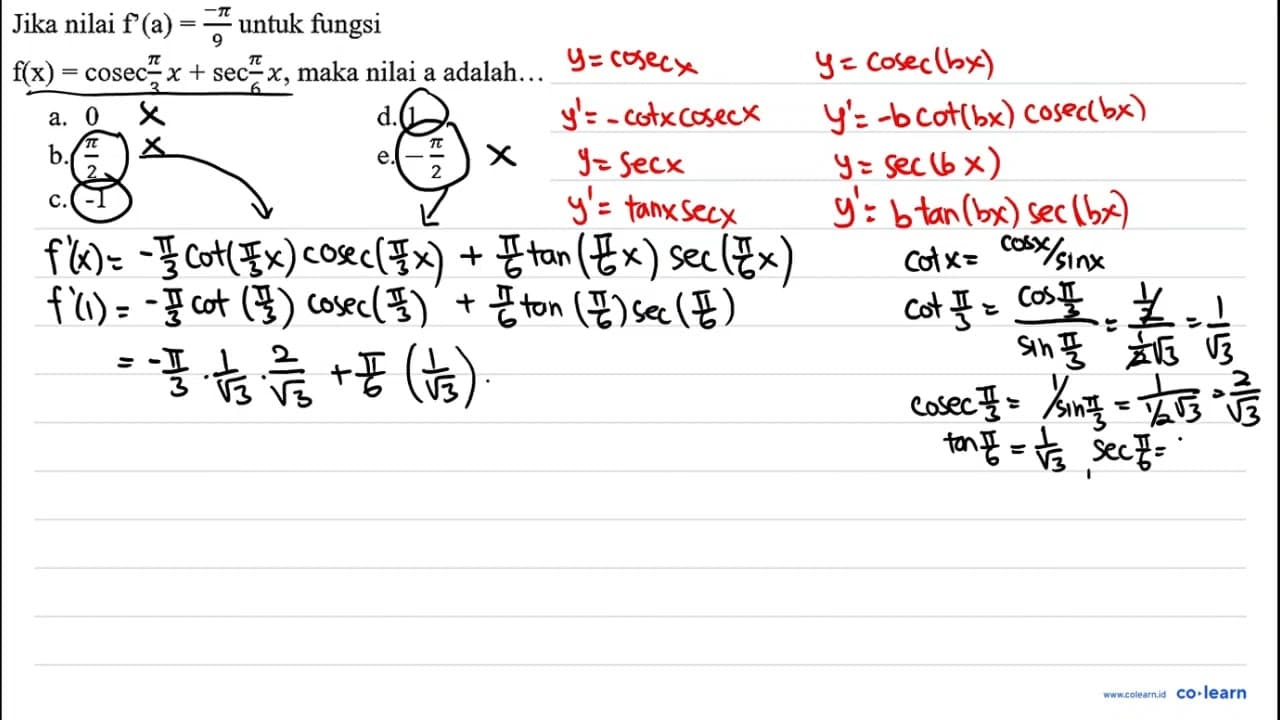 Jika nilai f'(a) = -π/9 untuk fungsi
f(x) = cosec π/3 x + sec π/6 x, maka nilai a adalah…
a. 0 x
b. π/2 x
c. -1
d. 1
e. -π/2 x
y = cosec x
y' = -cotx cosec x
y = sec x
y' = tanx sec x
y = cosec(bx)
y' = -b cot(bx) cosec(bx)
y = sec(bx)
y' = b tan(bx) sec(bx)
f'(x) = -π/3 cot(π/3 x) cosec(π/3 x) + π/6 tan(π/6 x) sec(π/6 x)
f'(1) = -π/3 cot(π/3) cosec(π/3) + π/6 tan(π/6) sec(π/6)
= -π/3 . 1/√3 . 2/√3 + π/6 (1/√3) .
cot x = cosx/sinx
cot π/3 = cos π/3 / sin π/3 = 1/2 / 1/2 √3 = 1/√3
cosec π/3 = 1/sin π/3 = 1 / 1/2 √3 = 2/√3
tan π/6 = 1/√3 , sec π/6 =
www.colearn.id co·learn